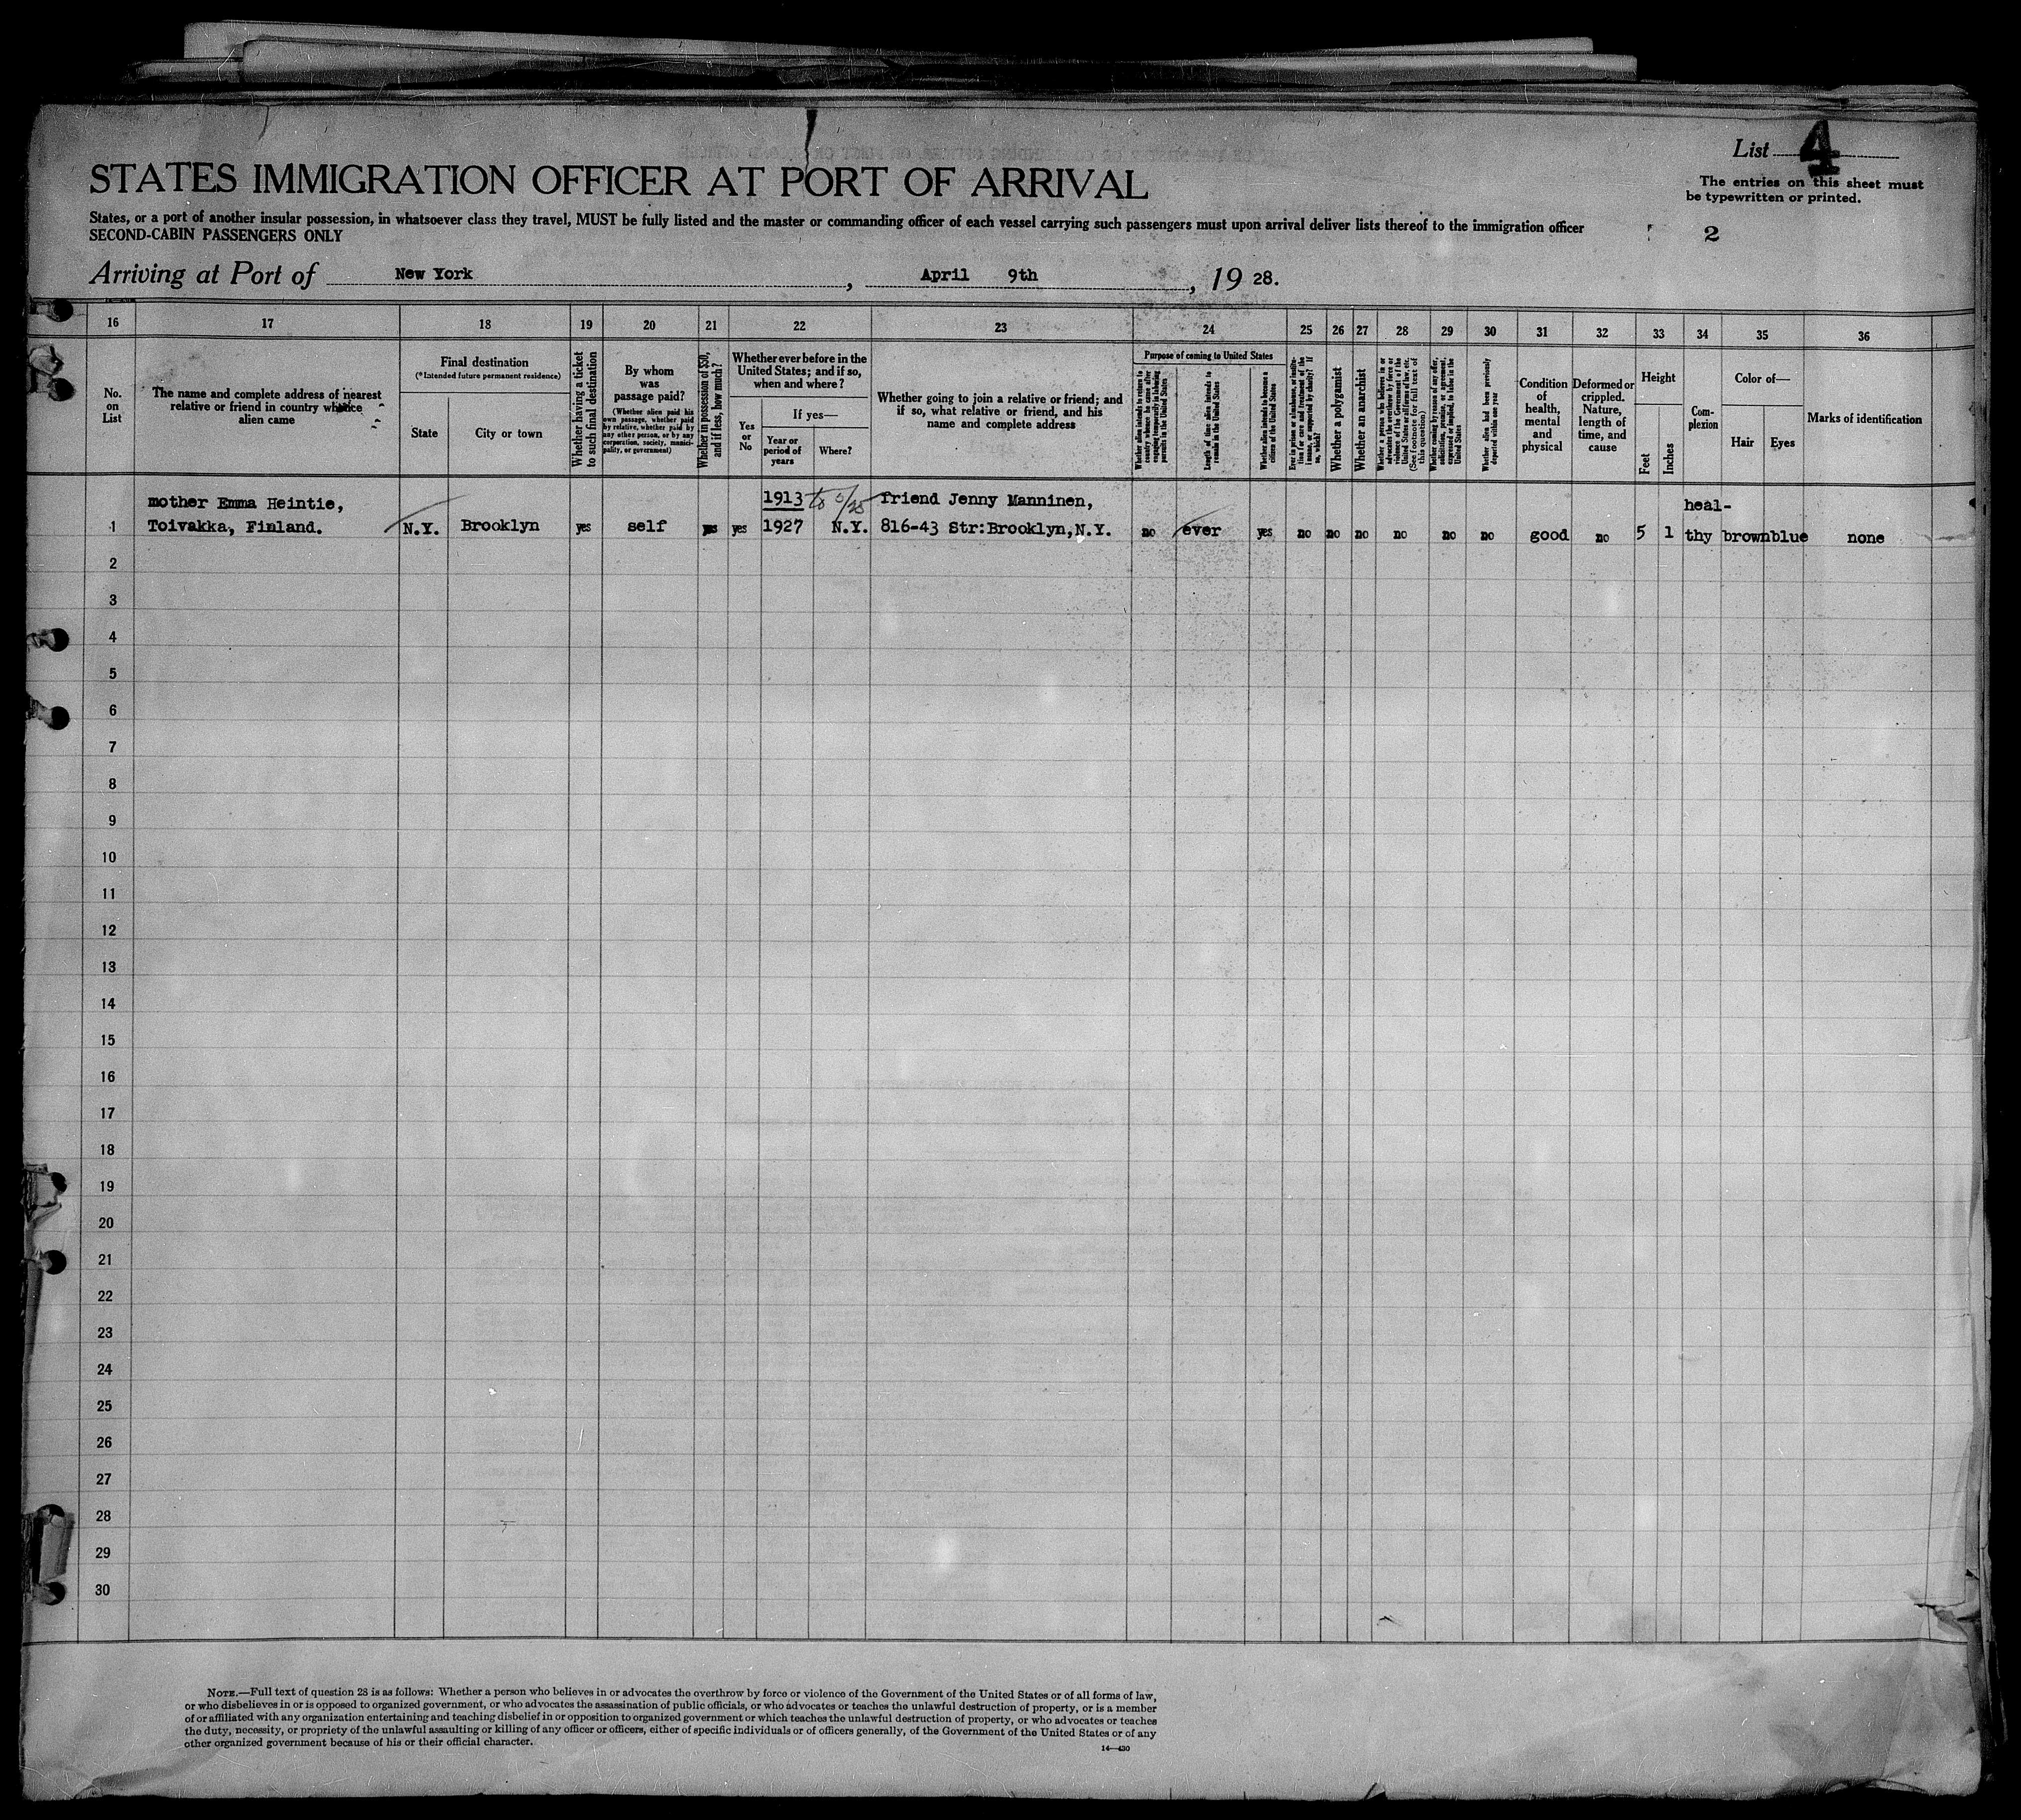 List 4
The entries on this sheet must
be typewritten or printed.
STATES IMMIGRATION OFFICER AT PORT OF ARRIVAL
States, or a port of another insular possession, in whatsoever class they travel, MUST be fully listed and the master or commanding officer of each vessel carrying such passengers must upon arrival deliver lists thereof to the immigration officer
SECOND-CABIN PASSENGERS ONLY
2
Arriving at Port of New York, April 9th, 19 28.
16 17 18 19 20 21 22 23 24 25 26 27 28 29 30 31 32 33 34 35 36
No.
on
List
The name and complete address of nearest
relative or friend in country whence
alien came
Final destination
(*Intended future permanent residence)
State
City or town
Whether having a ticket
to such final destination
By whom
was
passage paid?
(Whether alien paid his
own passage, whether paid
by relative, whether paid by
any other person, or by any
corporation, society, munici-
pality, or government)
Whether in possession of $50,
and if less, how much?
Whether ever before in the
United States; and if so,
when and where?
Yes
or
No
If yes—
Year or
period of
years
Where?
Whether going to join a relative or friend; and
if so, what relative or friend, and his
name and complete address
Purpose of coming to United States
Whether alien intends to return to
country whence he came after
engaging temporarily in laboring
pursuits in the United States
Length of time alien intends to
remain in the United States
Whether alien intends to become a
citizen of the United States
Ever in prison or almshouse, or institu-
tion for care and treatment of the
insane, or supported by charity? If
so, which?
Whether a polygamist
Whether an anarchist
Whether a person who believes in or
advocates the overthrow by force or
violence of the Government of the
United States or all forms of law, etc.
(See footnote for full text of
this question)
Whether coming by reason of any offer,
solicitation, promise, or agreement,
expressed or implied, to labor in the
United States
Whether alien had been previously
deported within one year
Condition
of
health,
mental
and
physical
Deformed or
crippled.
Nature,
length of
time, and
cause
Height
Feet
Inches
Com-
plexion
Color of—
Hair
Eyes
Marks of identification
mother Emma Heintie, 1913 to friend Jenny Manninen, heal-
1 Toivakka, Finland. N.Y. Brooklyn yes self yes yes 1927 N.Y. 816-43 Str:Brooklyn,N.Y. no ever yes no no no no no no good no 5 1 thy brown blue none
2
3
4
5
6
7
8
9
10
11
12
13
14
15
16
17
18
19
20
21
22
23
24
25
26
27
28
29
30
NOTE.—Full text of question 28 is as follows: Whether a person who believes in or advocates the overthrow by force or violence of the Government of the United States or of all forms of law,
or who disbelieves in or is opposed to organized government, or who advocates the assassination of public officials, or who advocates or teaches the unlawful destruction of property, or is a member
of or affiliated with any organization entertaining and teaching disbelief in or opposition to organized government or which teaches the unlawful destruction of property, or who advocates or teaches
the duty, necessity, or propriety of the unlawful assaulting or killing of any officer or officers, either of specific individuals or of officers generally, of the Government of the United States or of any
other organized government because of his or their official character.
14—430